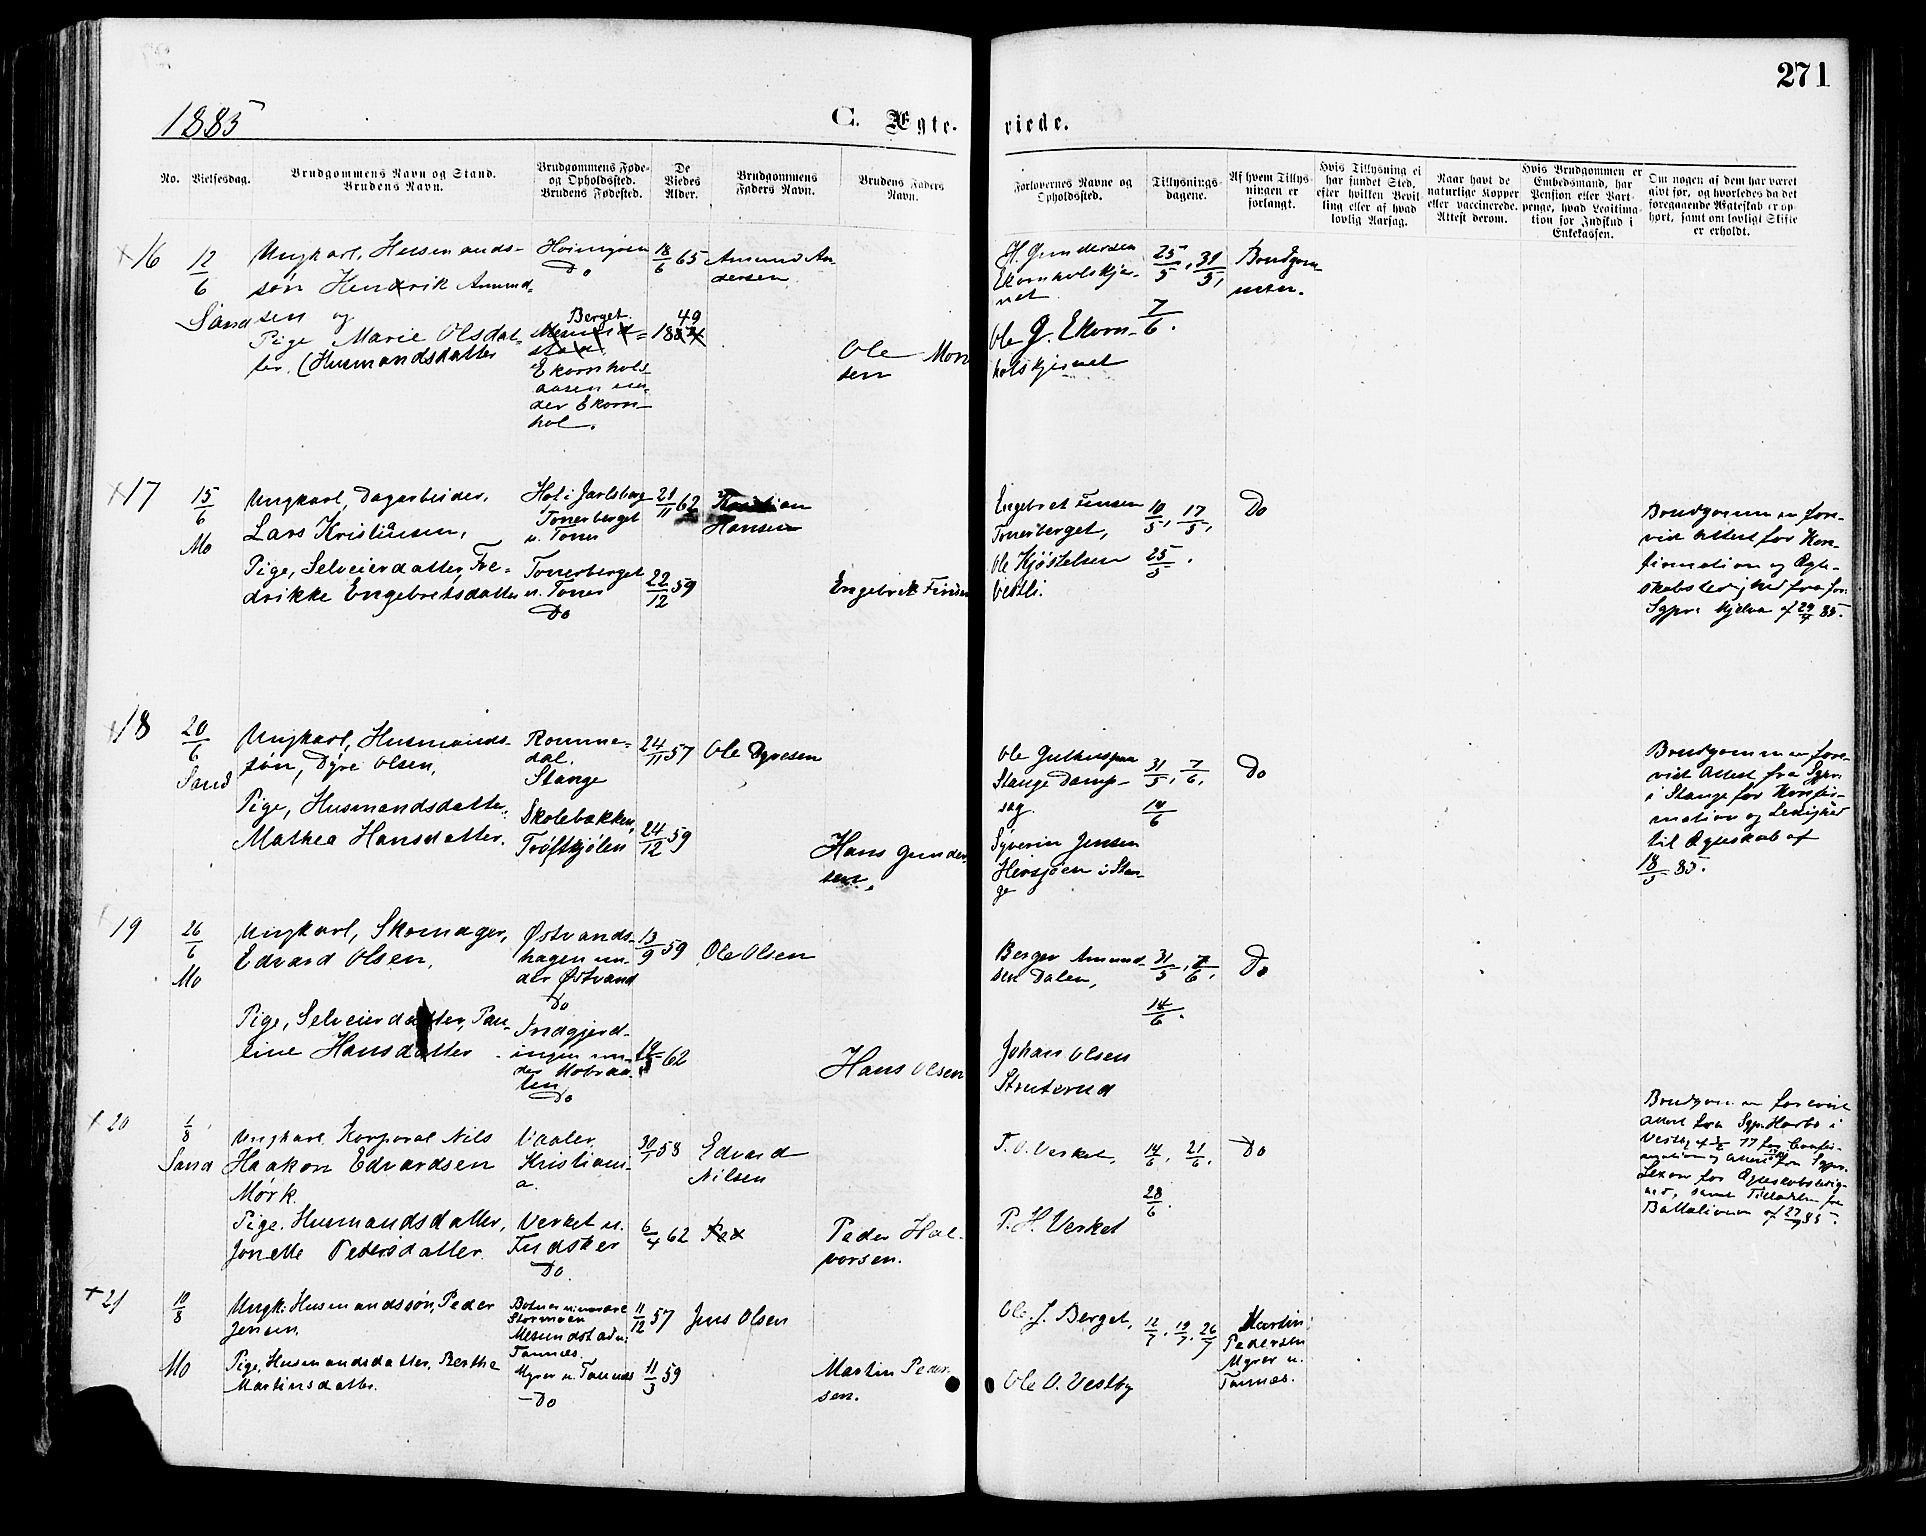 271
1885
C. Ægte-
viede.
No.
Vielsesdag.
Brudgommens Navn og Stand.
Brudens Navn.
Brudgommens Føde-
og Opholdssted.
Brudens Fødested.
De
Viedes
Alder.
Brudgommens
Faders Navn.
Brudens Faders
Navn.
Forlovernes Navne og
Opholdssted.
Tillysnings-
dagene.
Af hvem Tillys-
ningen er
forlangt.
Hvis Tillysning ei
har fundet Sted,
efter hvilken Bevil-
ling eller af hvad
lovlig Aarsag.
Naar havt de
naturlige Kopper
eller vaccinerede.
Attest derom.
Hvis Brudgommen er
Embedsmand, har
Pension eller Vart-
penge, hvad Legitima-
tion for Indskud i
Enkekassen.
Om nogen af dem har været
givt før, og hvorledes da det
foregaaende Ægteskab er op-
hørt, samt om lovligt Skifte
er erholdt.
16
12/6
Sand
Ungkarl, Husmands-
søn Hendrik Amund-
sen og
Pige Marie Olsdat-
ter. (Husmandsdatter
Do
Berget
Ekornhols-
aasen un-
der Ekorn-
hol.
18/6 65
49
18
Amund An-
dersen.
Ole Mor
sen
H. Gundersen
Ekornholskjæ-
net
Ole G. Ekorn-
holskjernet
25/5, 31/5,
7/6.
Brudgom-
men.
17
15/6
Mo
Ungkarl, Dagarbeider,
Lars Kristiansen,
Pige, Selveierdatter, Fre-
drikke Engebretsdatter
Hol i Jarlsberg
Tonerberget
u. Toner
Tonerberget
u. Toner
Do
21/11 62
22/12 59
Kristian
Hansen
Engebrek Finsen
Engebret Finsen
Tonerberget,
Ole Kjøstelsen
Vestli.
10/5, 17/5,
25/5.
Do
Brudgommen fore-
vist Attest for Kon-
firmation og Ægte-
skabsledighed fra for.
Sgpr. Hjelm af 29/4 85.
18
20/6
Sand
Ungkarl, Husmands-
søn, Dyre Olsen,
Pige, Husmandsdatter,
Mathea Hansdatter.
Romme-
dal.
Stange
Skolebakken,
Trøftkjølen
24/11 57
24/12 59
Ole Dyresen
Hans Gunder
sen,
Ole Gulhuspaa
Stange Damp-
sag.
Syverin Jensen
Hersjøen i Stan-
ge
31/5, 7/6,
14/6
Do
Brudgommen fore-
vist Attest fra Sgpr.
i Stange for Konfir-
mation og Ledighed
til Ægteskab af
18/5 85.
19
26/6
Mo
Ungkarl, Skomager,
Edvard Olsen,
Pige, Selveierdatter, Pau-
line Hansdatter
Østvands-
hagen un-
der Østvand
Do
Indgjerd-
ingen un-
der Mobraa-
ten
Do
13/9 59
62
Ole Olsen
Hans Olsen
Berger Amund-
sen Dalen,
Johan Olsen
Struterud
31/5, 7/6,
14/6.
Do
20
1/8
Sand
Ungkarl Korporal Nils
Haakon Edvardsen
Mørk.
Pige, Husmandsdatter,
Jonette Petersdatter.
Vaaler
Kristiani-
a.
Verket u.
Fudsker
Do.
30/1 58
6/4 62
Edvard
Nilsen
Peder Hal-
vorsen.
T. O. Verket,
P. H. Verket
14/6, 21/6,
28/6.
Do
Brudgommen forevist
Attest fra Sgpr. Horbo i
Vestby 77 for Confir-
mation og Attest fra Sgpr.
for Ægteskabsledig-
hed, samt Tilladelse fra
Battalionen af 27/7 85.
21
10/8
Mo
Ungk. Husmandssøn, Peder
Jensen.
Pige, Husmandsdatter, Berthe
Martinsdatter.
Stormoen
Tannæs.
Myrer u. Tannæs
Do
11/12 57
11/3 59
Jens Olsen
Martin Peder-
sen.
Ole J. Berget,
Ole O. Vestby
12/7, 19/7, 26/7
Martin
Pedersen
Myrer u.
Tannæs.